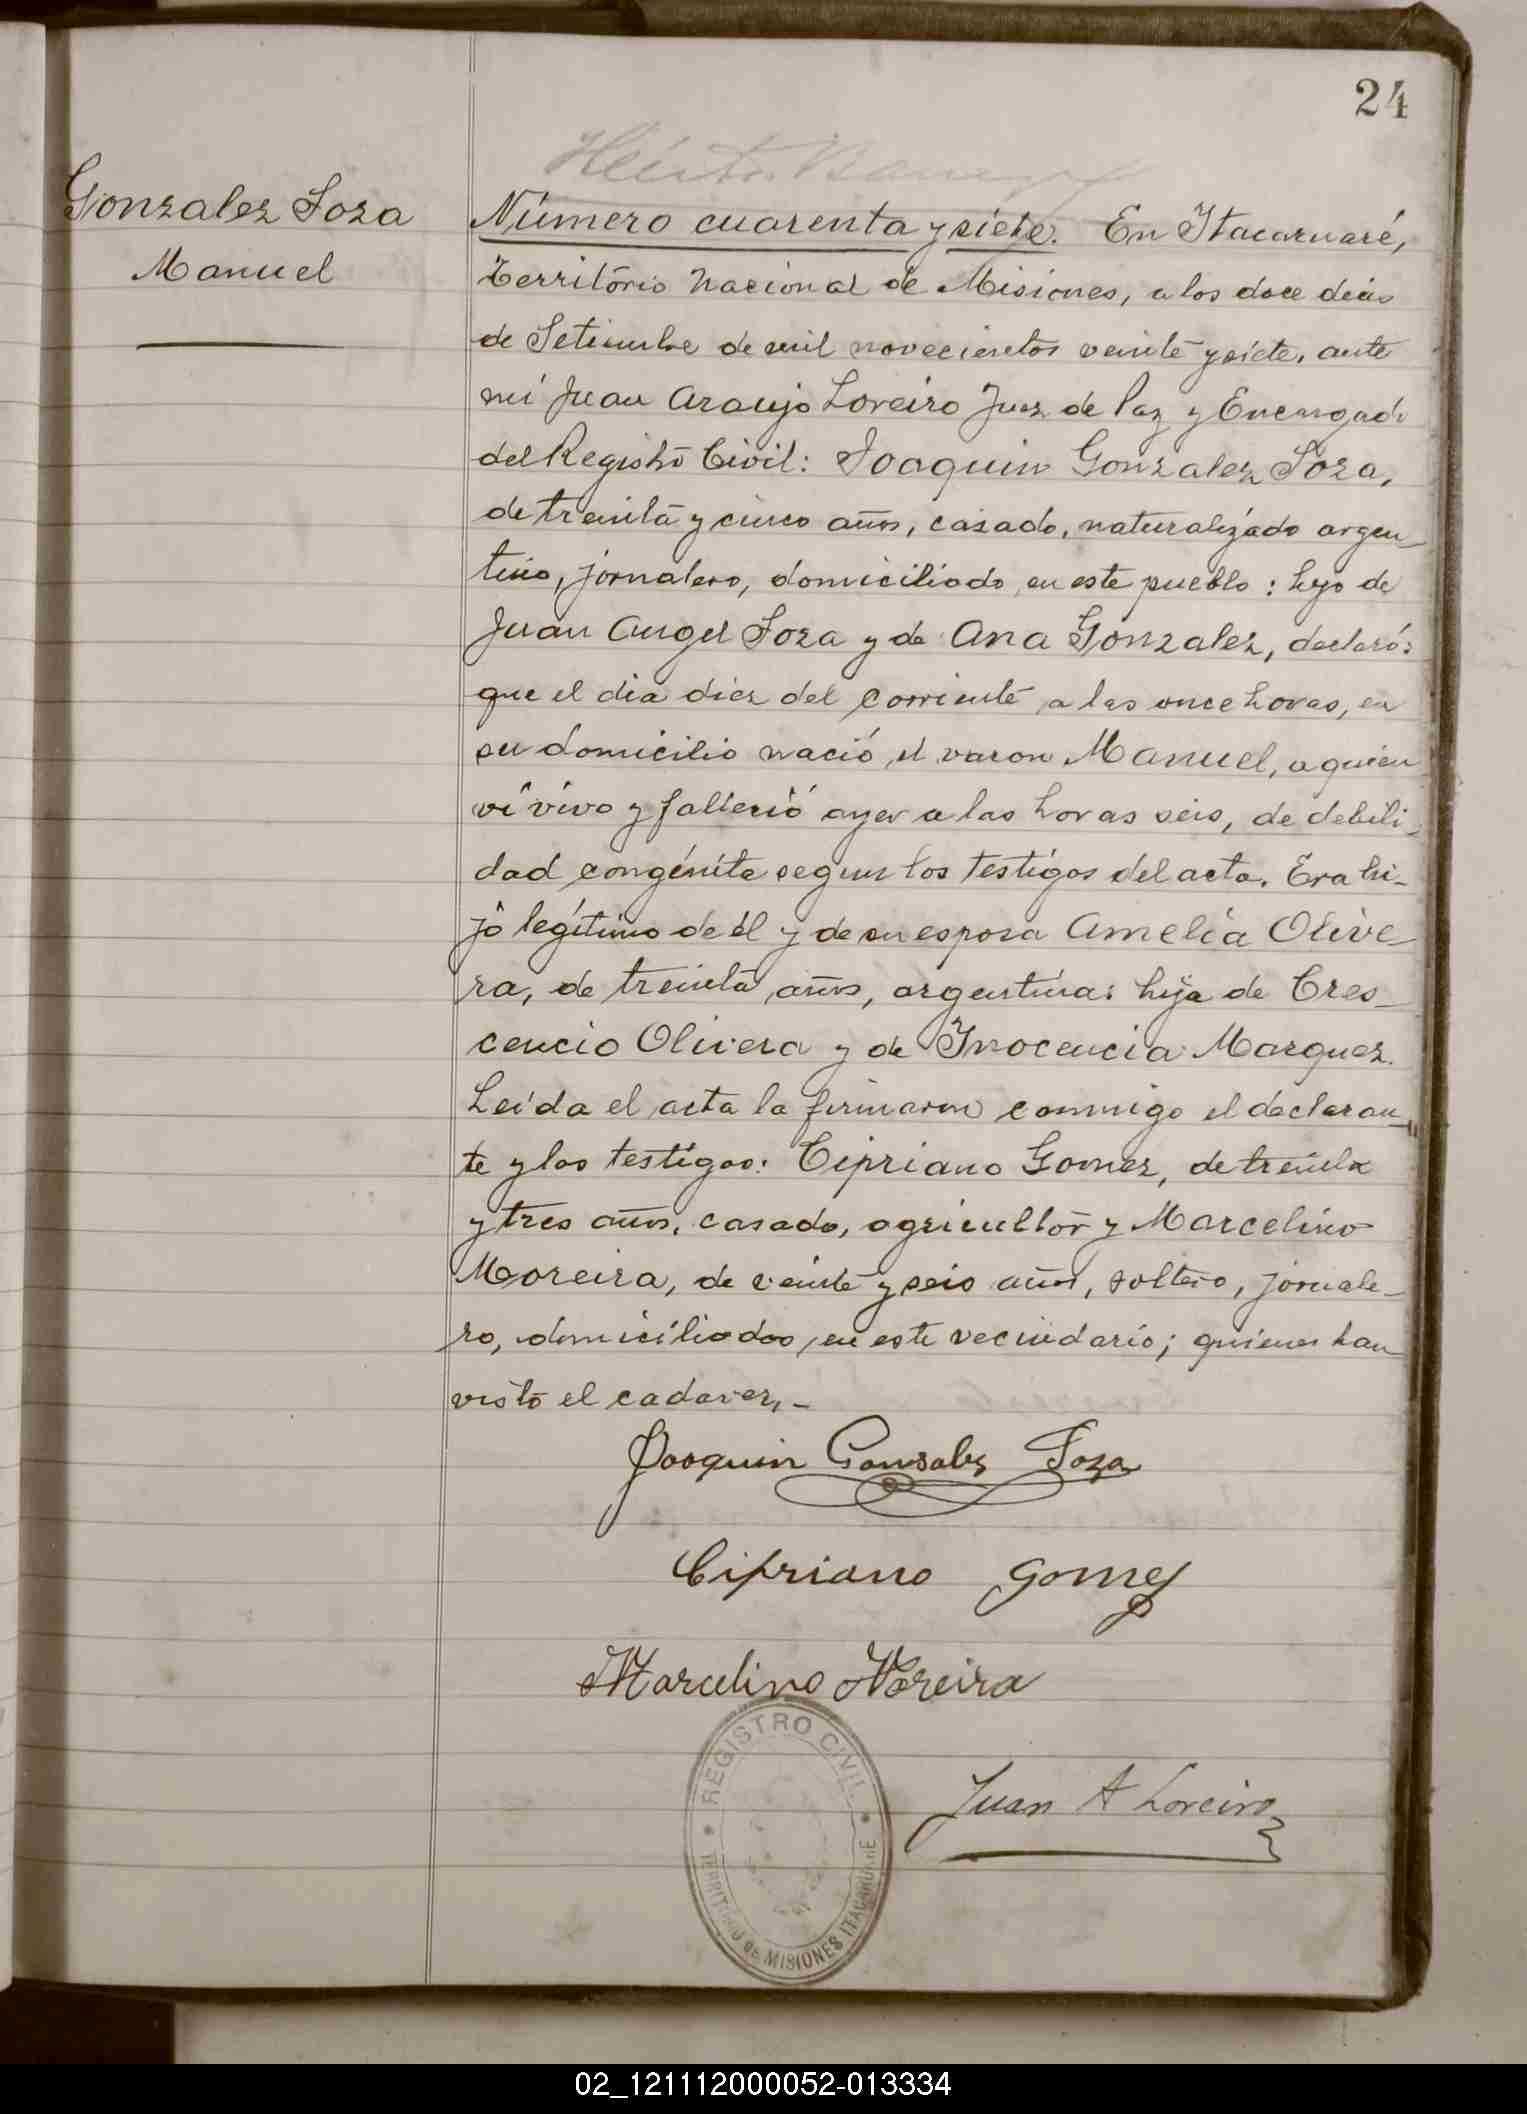 24
Gonzalez Soza
Manuel
Número cuarenta y siete. En Itacaruaré,
Territorio Nacional de Misiones, a los doce dias
de Setiembre de mil novecientos veinte y siete, ante
mi Juan Araujo Loreiro Juez de Paz y Encargado
del Registro Civil: Joaquin Gonzalez Soza,
de treinta y cinco años, casado, naturalizado argen-
tino, jornalero, domiciliado en este pueblo: hijo de
Juan Angel Soza y de Ana Gonzalez, declaró:
que el dia diez del corriente a las once horas, en
su domicilio nació el varon Manuel, a quien
ví vivo y falleció ayer a las horas seis, de debili-
dad congénita segun los testigos del acta. Era hi-
jo legítimo de él y de su esposa Amelia Olive-
ra, de treinta años, argentina: hija de Cres-
cencio Olivera y de Inocencia Marquez.
Leída el acta la firmaron conmigo el declaran-
te y los testigos: Cipriano Gomez, de treinta
y tres años, casado, agricultor y Marcelino
Moreira, de veinte y seis años, soltero, jornale-
ro, domiciliados en este vecindario; quienes han
visto el cadaver.-
Joaquin Gonsales Soza
Cipriano Gomez
Marcelino Moreira
Juan A Loreiro
REGISTRO CIVIL
TERRITORIO DE MISIONES ITACARUARE
02_121112000052-013334